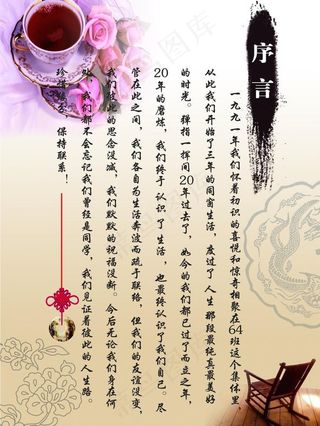 序言
一九九一年我们怀着初识的喜悦和惊奇相聚在64班这个集体里，
从此我们开始了三年的同窗生活，度过了人生那段最纯真最美好
的时光。弹指一挥间20年过去了，如今的我们都已过了而立之年，
20年的磨练，我们终于认识了生活，也最终认识了我们自己。尽
管在此之间，我们各自为生活奔波而疏于联络，但我们的友谊没变，
我们彼此的思念没减，我们默默的祝福没断。今后无论我们身在何
处，我们都不会忘记我们曾经是同学，我们见证着彼此的人生路。
，保持联系！